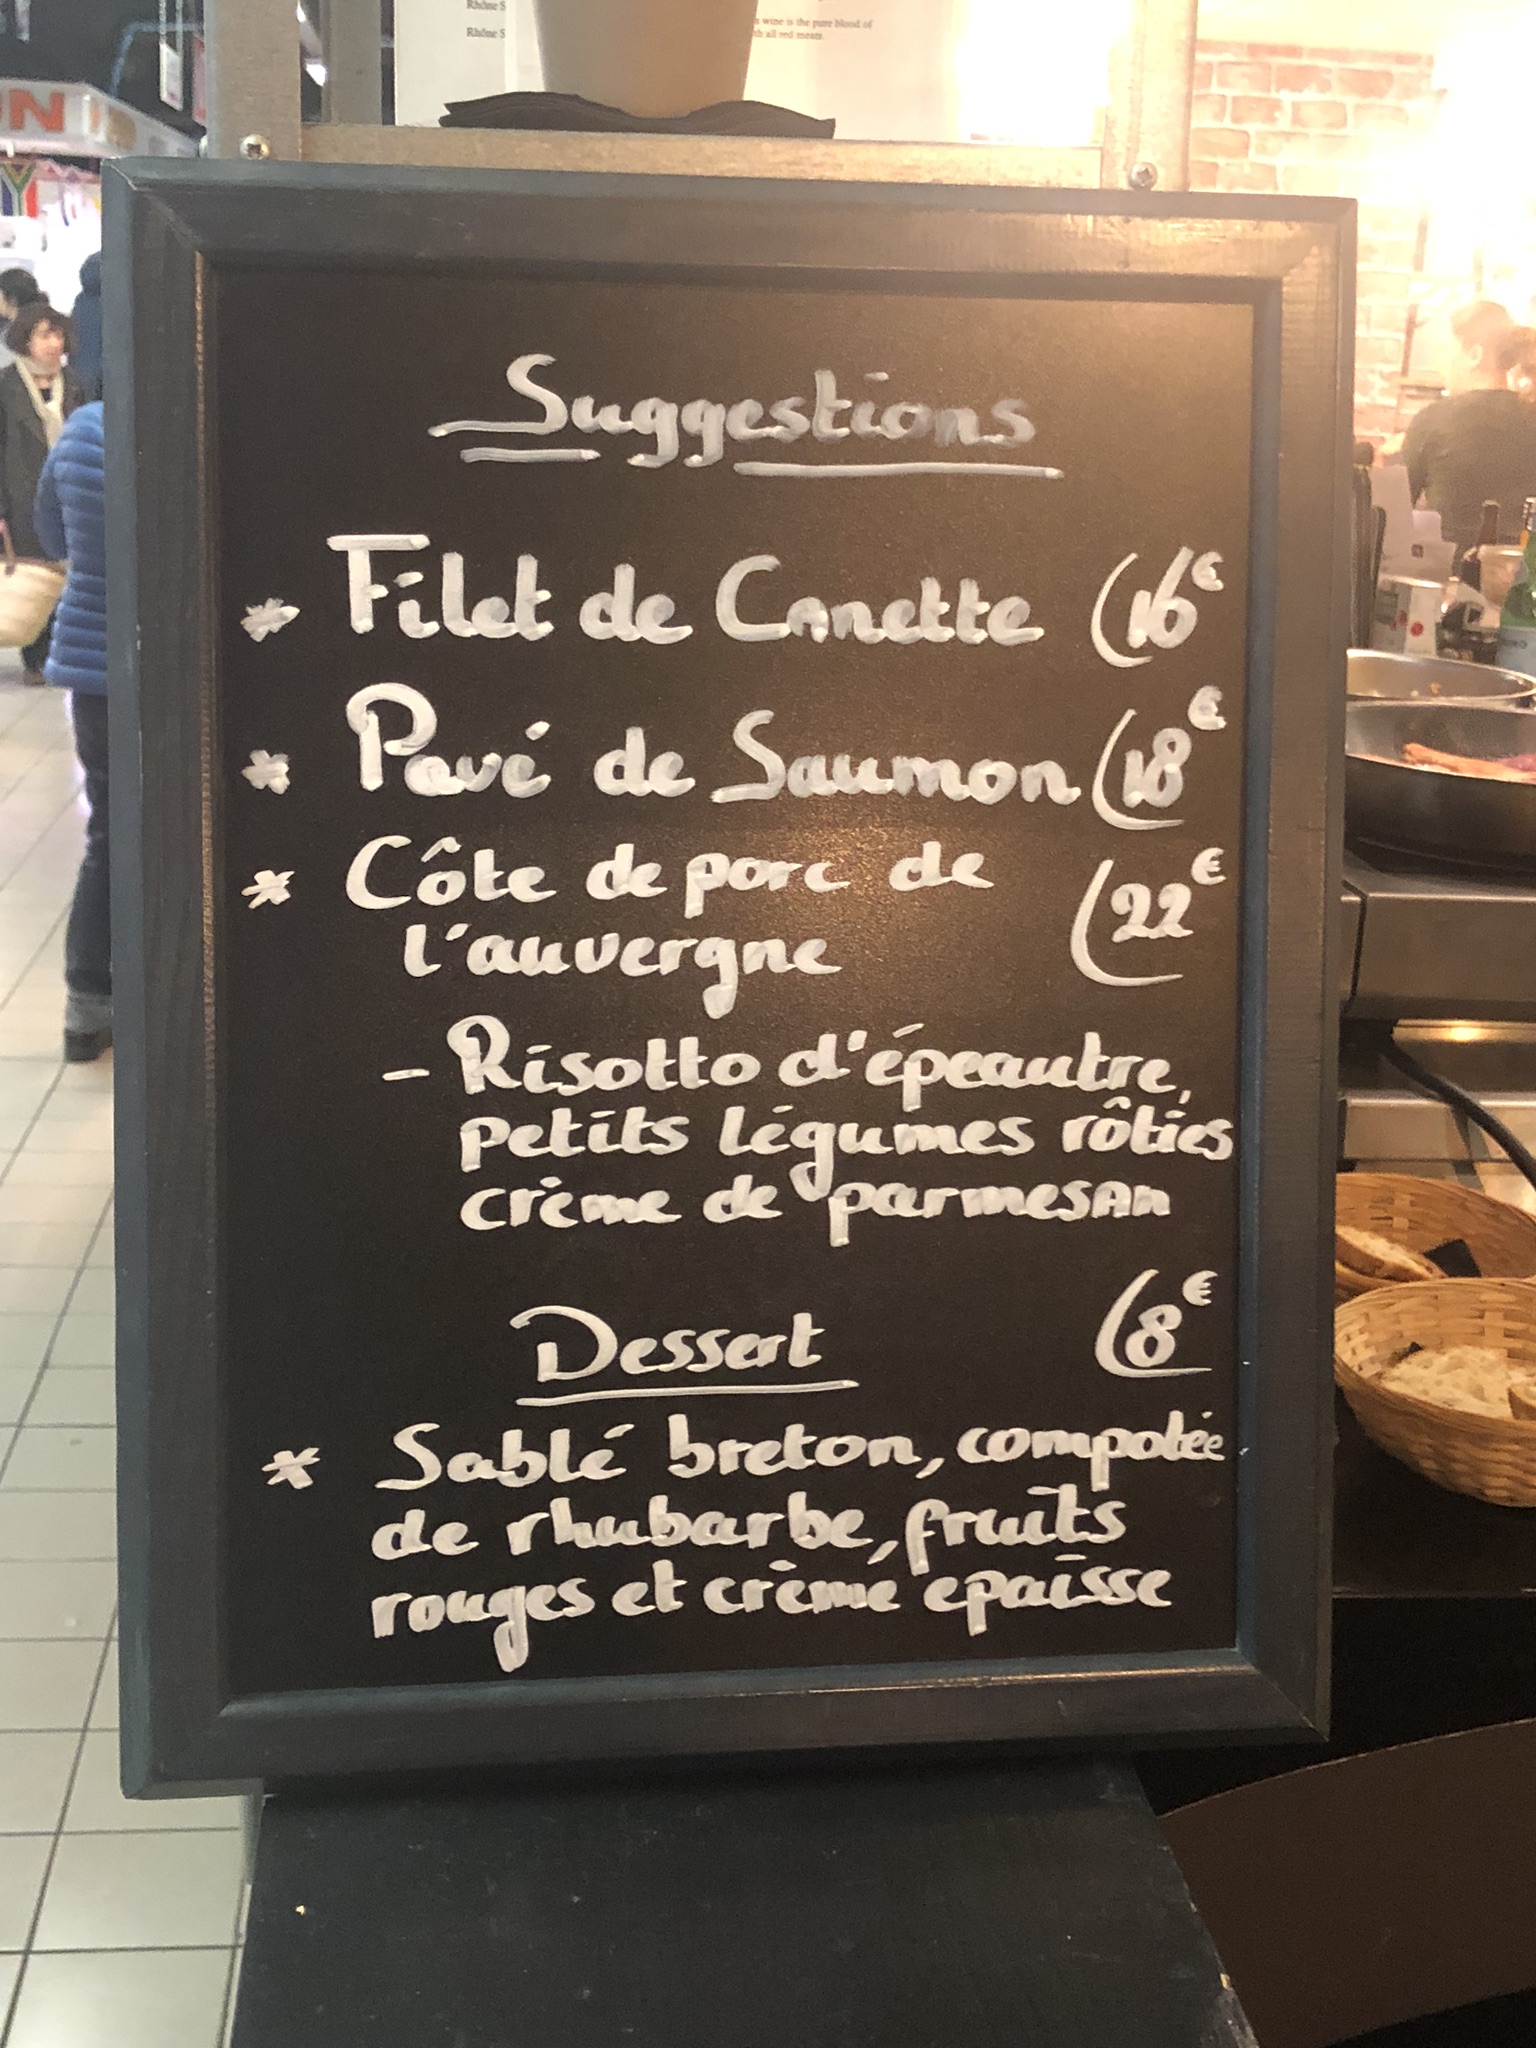 Rhône S
Rhône S
wine is the pure blood of
all red meats.
ON
Suggestions
* Filet de Canette (16€
* Pavé de Saumon (18€
* Côte de porc de
l'auvergne (22€
- Risotto d'épeautre,
petits légumes rôties
crème de parmesan
Dessert (8€
* Sablé breton, compotée
de rhubarbe, fruits
rouges et crème épaisse